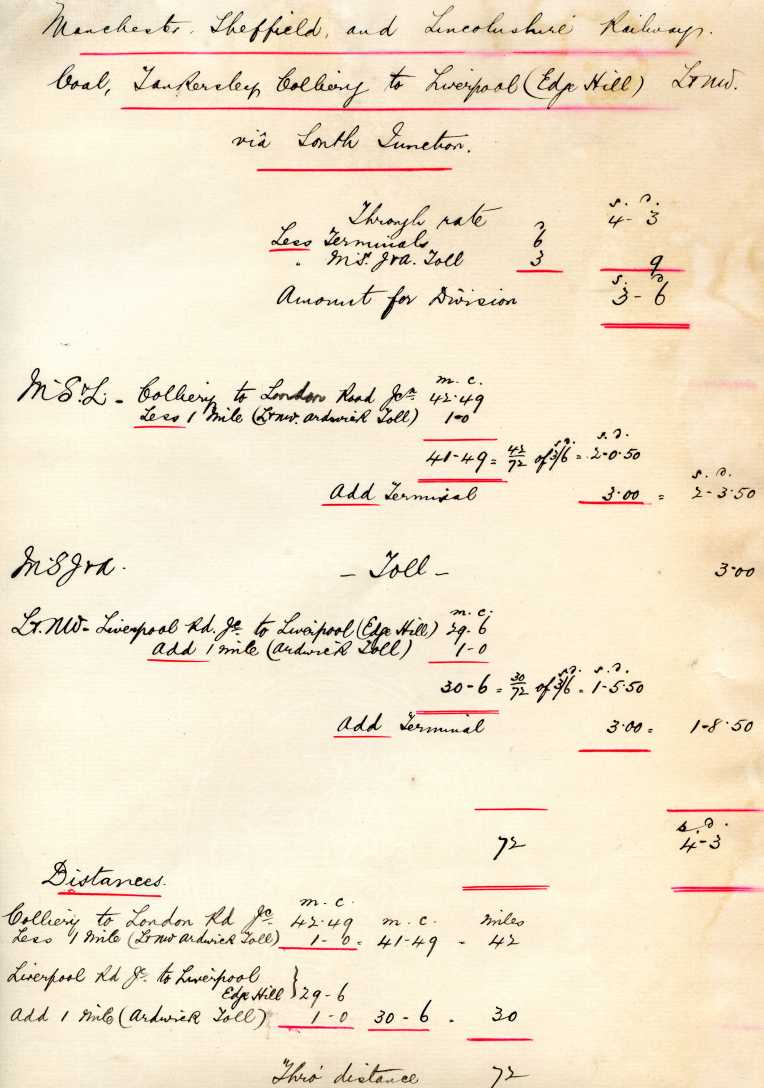 Manchester, Sheffield, and Lincolnshire Railway.
Coal, Tankersley Colliery to Liverpool (Edge Hill) L&NW.
viâ South Junction.
s. d.
Through rate 4-3
d
Less Terminals 6
" M.S.J&A. Toll 3 9
s. d.
Amount for Division 3-6
m. c.
M.S&L. - Colliery to London Road Jcn 42.49
Less 1 Mile (L&NW. Ardwick Toll) 1-0
s. d. s. d.
41-49 = 42/72 of 3/6 = 2-0.50
s. d.
Add Terminal 3.00 = 2-3.50
M.S.J&A. - Toll - 3.00
m. c.
L&NW - Liverpool Rd. Jc. to Liverpool (Edge Hill) 29-6
Add 1 mile (Ardwick Toll) 1-0
s. d. s. d.
30-6 = 30/72 of 3/6 = 1-5.50
Add Terminal 3.00 = 1-8.50
s. d.
72 4-3
Distances.
m. c.
Colliery to London Rd Jc. 42.49 m. c. miles
Less 1 Mile (L&NW Ardwick Toll) 1-0 = 41-49 = 42
Liverpool Rd Jc. to Liverpool
Edge Hill } 29-6
Add 1 Mile (Ardwick Toll) 1-0 30-6 = 30
Thro' distance 72